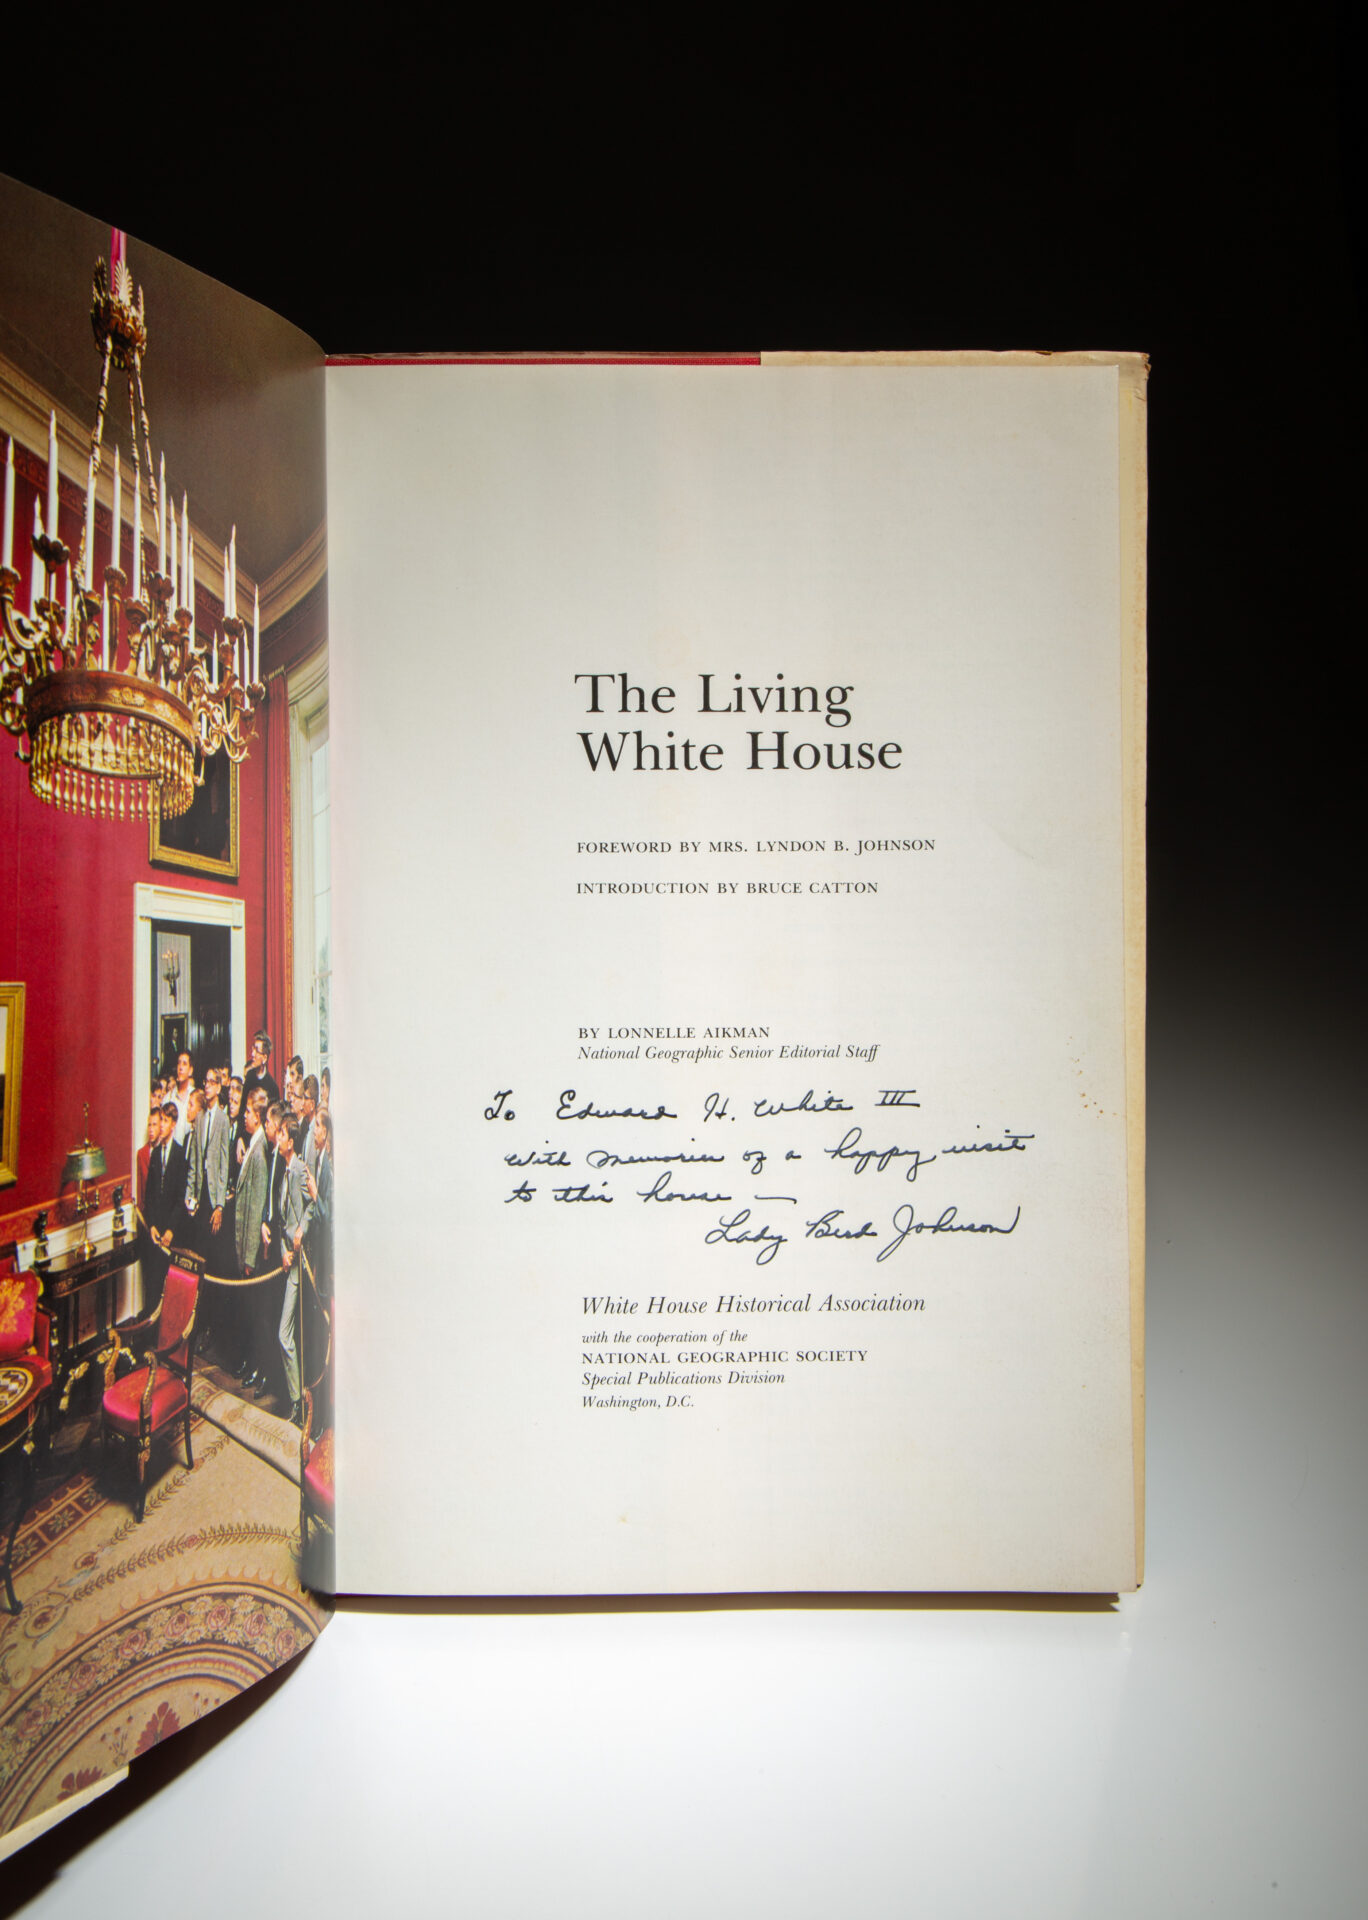 The Living
White House
FOREWORD BY MRS. LYNDON B. JOHNSON
INTRODUCTION BY BRUCE CATTON
BY LONNELLE AIKMAN
National Geographic Senior Editorial Staff
To Edward H. White III
with memories of a happy visit
to this house —
Lady Bird Johnson
White House Historical Association
with the cooperation of the
NATIONAL GEOGRAPHIC SOCIETY
Special Publications Division
Washington, D.C.